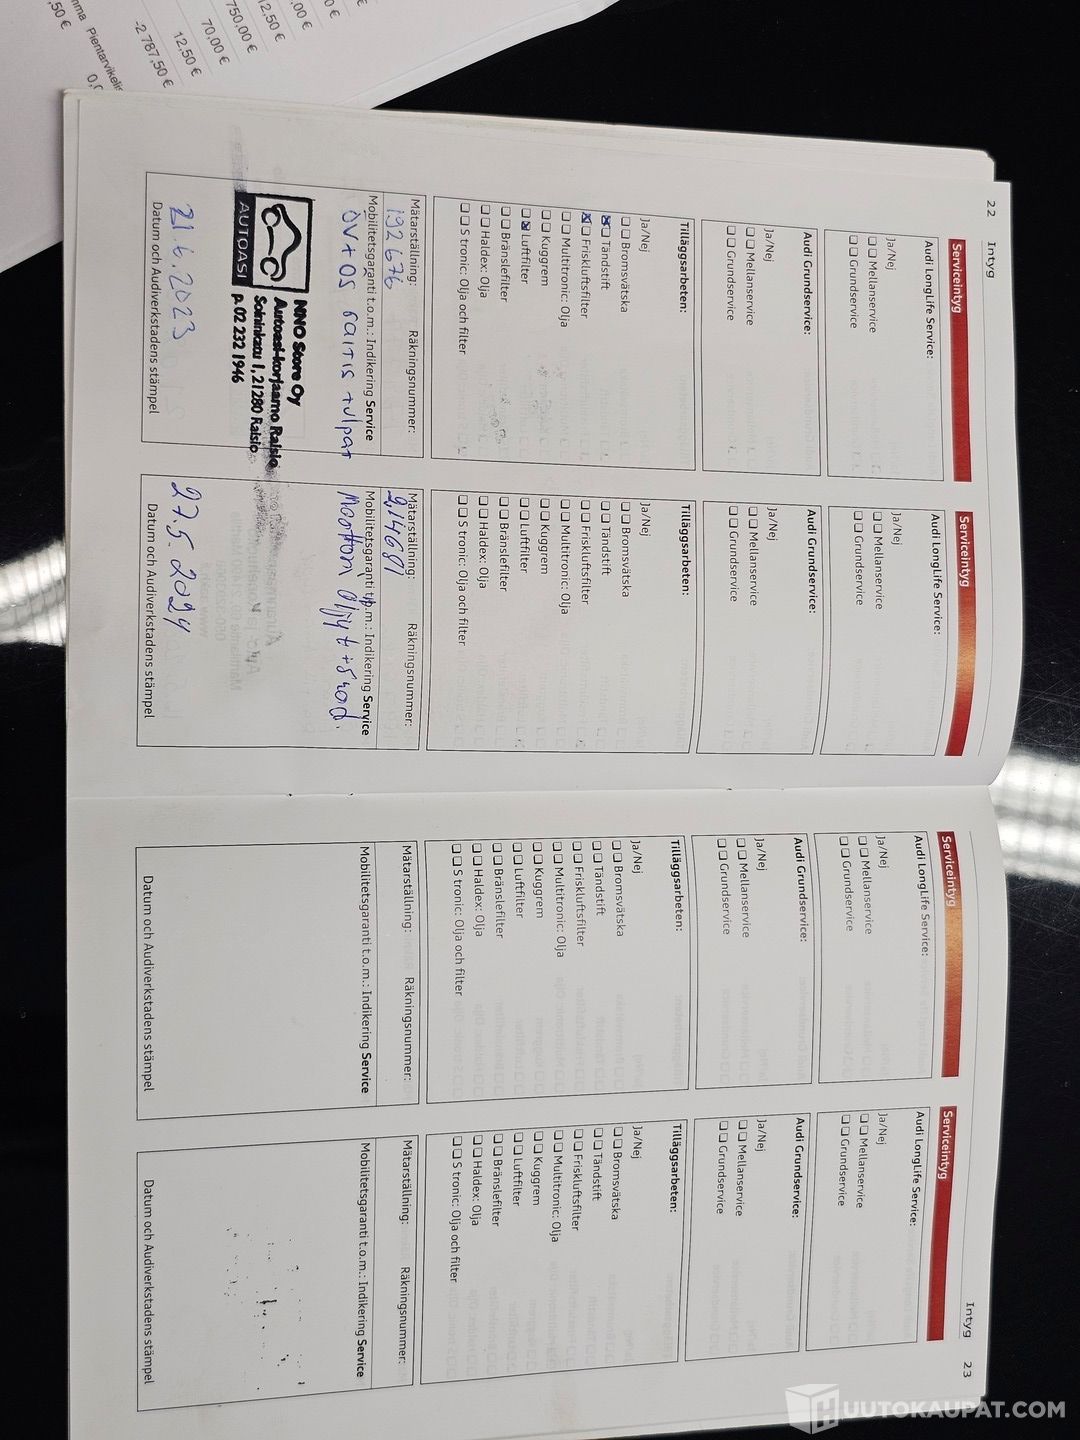 mma Pientarvikelis
,50 €
-2 787,50 €
12,50 €
70,00 €
750,00 €
12,50 €
22 Intyg
Serviceintyg
Audi LongLife Service:
Ja/Nej
☐☐ Mellanservice
☐☐ Grundservice
Audi Grundservice:
Ja/Nej
☐☐ Mellanservice
☐☐ Grundservice
Tilläggsarbeten:
Ja/Nej
☐☐ Bromsvätska
☒☐ Tändstift
☒☐ Friskluftsfilter
☐☐ Multitronic: Olja
☐☐ Kuggrem
☐☒ Luftfilter
☐☐ Bränslefilter
☐☐ Haldex: Olja
☐☐ S tronic: Olja och filter
Mätarställning: Räkningsnummer:
192676
Mobilitetsgaranti t.o.m.: Indikering Service
ÖV+ÖS raitis tulpat
NNO Store Oy
Autoasi-korjaamo Raisio
Soininkatu 1, 21280 Raisio
p. 02 232 1946
AUTOASI
21.6.2023
Datum och Audiverkstadens stämpel
Serviceintyg
Audi LongLife Service:
Ja/Nej
☐☐ Mellanservice
☐☐ Grundservice
Audi Grundservice:
Ja/Nej
☐☐ Mellanservice
☐☐ Grundservice
Tilläggsarbeten:
Ja/Nej
☐☐ Bromsvätska
☐☐ Tändstift
☐☐ Friskluftsfilter
☐☐ Multitronic: Olja
☐☐ Kuggrem
☐☐ Luftfilter
☐☐ Bränslefilter
☐☐ Haldex: Olja
☐☐ S tronic: Olja och filter
Mätarställning: Räkningsnummer:
214681
Mobilitetsgaranti t.o.m.: Indikering Service
Moottori öljyt+Suod.
27.5.2024
Datum och Audiverkstadens stämpel
Intyg 23
Serviceintyg
Audi LongLife Service:
Ja/Nej
☐☐ Mellanservice
☐☐ Grundservice
Audi Grundservice:
Ja/Nej
☐☐ Mellanservice
☐☐ Grundservice
Tilläggsarbeten:
Ja/Nej
☐☐ Bromsvätska
☐☐ Tändstift
☐☐ Friskluftsfilter
☐☐ Multitronic: Olja
☐☐ Kuggrem
☐☐ Luftfilter
☐☐ Bränslefilter
☐☐ Haldex: Olja
☐☐ S tronic: Olja och filter
Mätarställning: Räkningsnummer:
Mobilitetsgaranti t.o.m.: Indikering Service
Datum och Audiverkstadens stämpel
Serviceintyg
Audi LongLife Service:
Ja/Nej
☐☐ Mellanservice
☐☐ Grundservice
Audi Grundservice:
Ja/Nej
☐☐ Mellanservice
☐☐ Grundservice
Tilläggsarbeten:
Ja/Nej
☐☐ Bromsvätska
☐☐ Tändstift
☐☐ Friskluftsfilter
☐☐ Multitronic: Olja
☐☐ Kuggrem
☐☐ Luftfilter
☐☐ Bränslefilter
☐☐ Haldex: Olja
☐☐ S tronic: Olja och filter
Mätarställning: Räkningsnummer:
Mobilitetsgaranti t.o.m.: Indikering Service
Datum och Audiverkstadens stämpel
HUUTOKAUPAT.COM